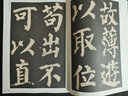 故薄遊
以取位
苟出不
可以直